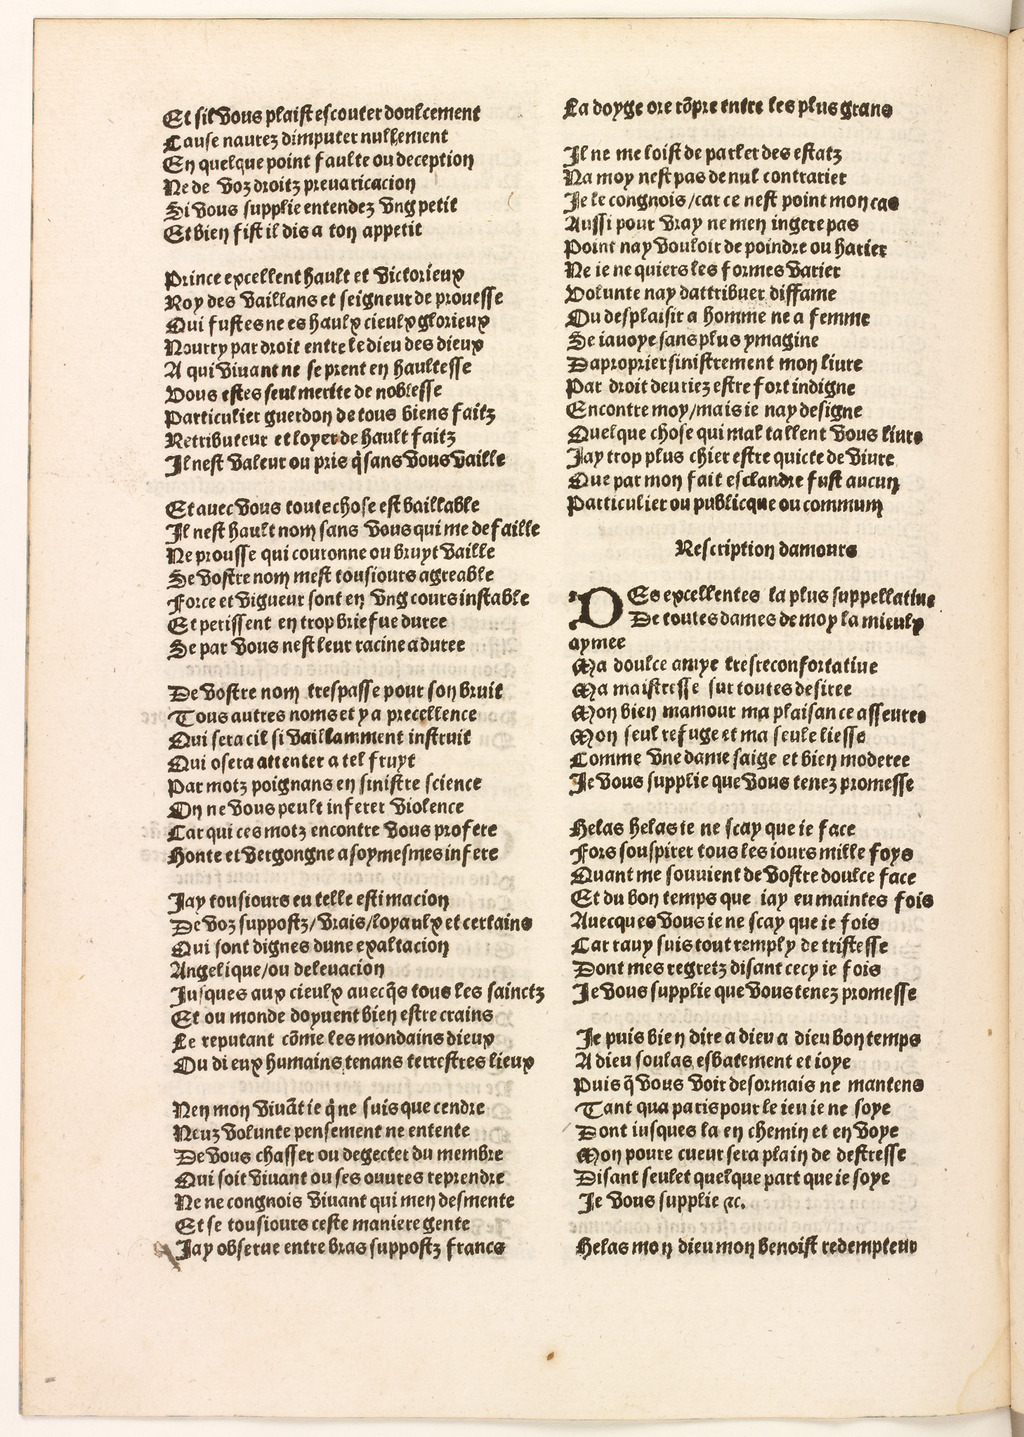 Et sil vous plaist escouter doulcement
Cause naurez dimputer nullement
En quelque point faulte ou deception
Ne de voz droitz preuaricacion
Si vous supplie entendez vng petit
Et bien fist il dis a ton appetit
Prince excellent hault et victorieux
Roy des vaillans et seigneur de prouesse
Qui fustes ne es haulx cieulx glorieux
Nourry par droit entre le dieu des dieux
A qui viuant ne se prent en haultesse
Vous estes seul merite de noblesse
Particulier guerdon de tous biens faitz
Retributeur et loyer de hault faitz
Il nest valeur ou pris q̃ sans vous vaille
Et auec vous toute chose est baillable
Il nest hault nom sans vous qui me defaille
Ne prousse qui couronne ou bruyt vaille
Se vostre nom mest tousiours agreable
Force et vigueur sont en vng cours instable
Et perissent en trop briefue duree
Se par vous nest leur racine a duree
De vostre nom trespasse pour son bruit
Tous autres noms et y a precellence
Qui sera cil si vaillamment instruit
Qui osera attenter a tel fruyt
Par motz poignans en sinistre science
On ne vous peult inferer violence
Car qui ces motz encontre vous profere
Honte et vergongne a soymesmes infere
Jay tousiours eu telle estimacion
De voz suppostz/vrais/loyaulx et certains
Qui sont dignes dune exaltacion
Angelique/ou deleuacion
Jusques aux cieulx auecq̃s tous les sainctz
Et ou monde doyuent bien estre crains
Le reputant cõme les mondains dieux
Ou di eux humains tenans terrestres lieux
Nen mon viuãt ie q̃ ne suis que cendre
Neuz volunte pensement ne entente
De vous chasser ou degecter du membre
Qui soit viuant ou ses ouures reprendre
Ne ne congnois viuant qui men desmente
Et se tousiours ceste maniere gente
Jay obserue entre bras suppostz francs
La doyge ore rõpre entre les plus grans
Il ne me loist de parler des estatz
Na moy nest pas de nul contrarier
Je le congnois/car ce nest point mon cas
Aussi pour vray ne men ingere pas
Point nay vouloir de poindre ou harier
Ne ie ne quiers les formes varier
Volunte nay dattribuer diffame
Ou desplaisir a homme ne a femme
Se iauoye sans plus ymagine
Daproprier sinistrement mon liure
Par droit deuriez estre fort indigne
Encontre moy/mais ie nay designe
Quelque chose qui mal tallent vous liure
Jay trop plus chier estre quicte de viure
Que par mon fait esclandre fust aucun
Particulier ou publicque ou commun
Rescription damours
DEs excellentes la plus suppellatiue
De toutes dames de moy la mieulx
aymee
Ma doulce amye tresreconfortatiue
Ma maistresse sur toutes desiree
Mon bien mamour ma plaisance asseuree
Mon seul refuge et ma seule liesse
Comme vne dame saige et bien moderee
Je vous supplie que vous tenez promesse
Helas helas ie ne scay que ie face
Fors souspirer tous les iours mille foys
Quant me souuient de vostre doulce face
Et du bon temps que iay eu maintes fois
Auecques vous ie ne scay que ie fois
Car rauy suis tout remply de tristesse
Dont mes regretz disant cecy ie fois
Je vous supplie que vous tenez promesse
Je puis bien dire a dieu a dieu bon temps
A dieu soulas esbatement et ioye
Puis q̃ vous voir desormais ne mantens
Tant qua paris pour le ieu ie ne soye
Dont iusques la en chemin et en voye
Mon poure cueur sera plain de destresse
Disant seulet quelque part que ie soye
Je vous supplie ⁊c.
Helas mon dieu mon benoist redempteur